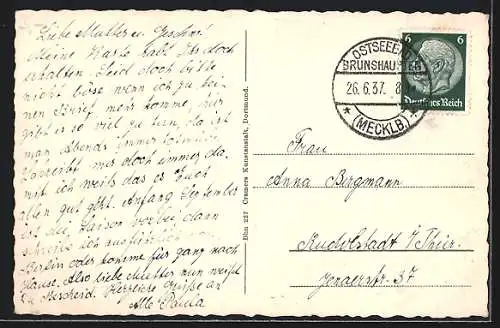 Liebe Mutter u. Geschw!
Meine Karte habt Ihr doch
erhalten. Seid doch bitte
nicht böse wenn ich zu kei-
nen Brief mehr komme, nur
gibt es so viel zu tun, da ist
man Abends immer
Schreibt mir doch immer da-
mit ich weiß das es Euch
allen gut geht. Anfang September
ist die Saison vorbei dann
schreibe ich
Berlin oder komme für ganz nach
Hause. Also liebe Mutter nun weißt
Du Bescheid. Herzliche Grüße an
Alle Paula
Bhn 227 Cramers Kunstanstalt, Dortmund.
OSTSEEBAD
BRUNSHAUPTEN
26.6.37. 8
* (MECKLB) *
6 6
Deutsches Reich
Frau
Anna Bergmann
Rudolstadt i/Thür.
Jenaerstr. 37